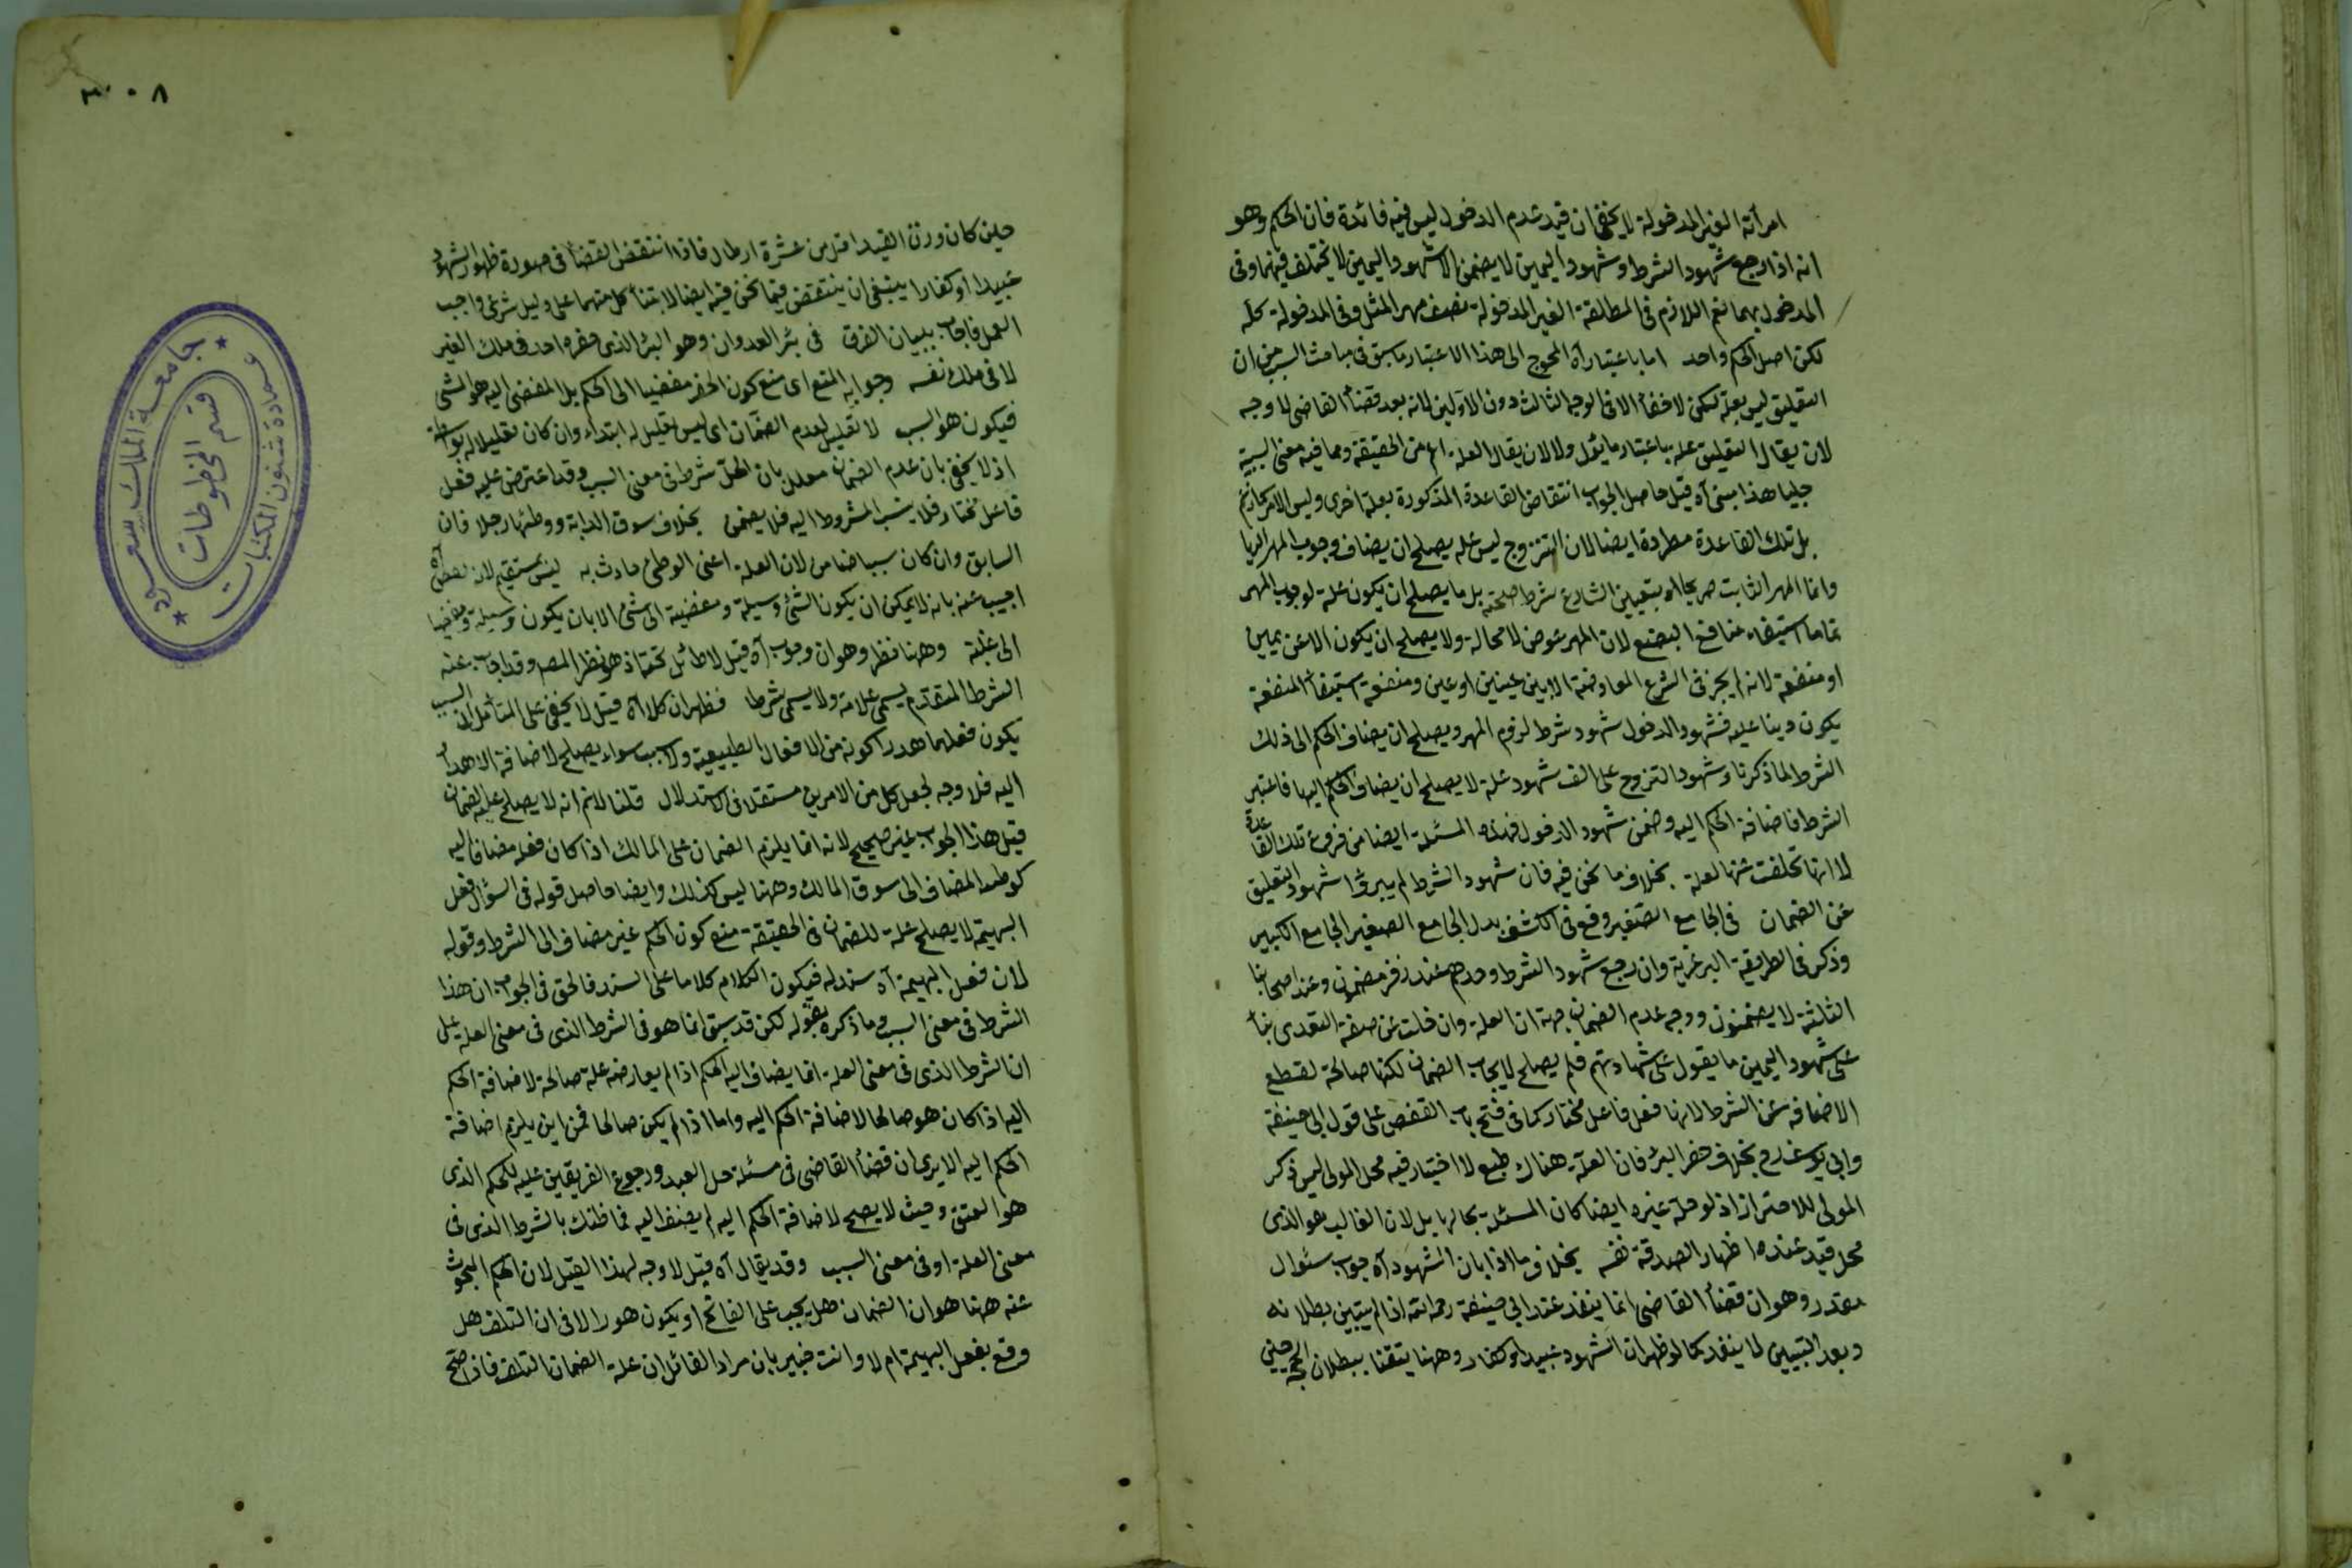 امرأته الغير المدخولة لا يخفى ان قيد عدم الدخول ليس فيه فائدة فان الحكم وهو
انه اذا رجع شهود الشرط وشهود اليمين لا يضمن الا شهود اليمين لا يختلف فيهما وفى
المدخول بهما نعم اللازم فى المطلقة الغير المدخولة نصف مهر المثل وفى المدخولة كله
لكن اصل الحكم واحد اما باعتبار آه المحوج الى هذا الاعتبار ما سبق فى مباحث السبب من ان
التعليق ليس بعلة لكن لا خفأ الا فى الوجه الثالث دون الاولين لانه بعد قضأ القاضى لا وجه
لان يقال التعليق علة باعتبار ما يؤل ولا لان يقال العلة اعم من الحقيقة ومما فيه معنى السببية
جليا هذا مبنى آه قيل حاصل الجواب انتقاض القاعدة المذكورة بعلة اخرى وليس الامر كما زعم
بل تلك القاعدة مطردة ايضا لان التزوج ليس علة يصلح ان يضاف وجوب المهر اليها
وانما المهر الثابت صريحا او بتعيين الشارع شرط صحته بل ما يصلح ان يكون علة لوجوب المهر
تماما استيفاء منافع البضع لان المهر عوض لا محالة ولا يصلح ان يكون الا عن يمين
او منفعة لانه لم يجز فى الشرع المعاوضة الا بين عينين او عين ومنفعة استيفأ المنفعة
يكون دينا عليه فشهود الدخول شهود شرط لزوم المهر ويصلح ان يضاف الحكم الى ذلك
الشرط لما ذكرنا وشهود التزوج على الف شهود علة لا يصلح ان يضاف الحكم اليها فاعتبر
الشرط فاضافة الحكم اليه وضمن شهود الدخول فهذه المسئلة ايضا من فروع تلك القاعدة
لا انها تخلفت عنها لعلة بخلاف ما نحن فيه فان شهود الشرط لم يبرؤا شهود التعليق
عن الضمان فى الجامع الصغير وقع فى الكشف بدل الجامع الصغير الجامع الكبير
وذكر فى الطريقة البرغرية وان رجع شهود الشرط وحدهم عند زفر يضمنون وعند اصحابنا
الثلثة لا يضمنون ووجه عدم الضمان جهة ان العلة وان خلت عن صفة التعدى بنأ
على شهود اليمين ما يقول على شهادتهم فلم يصلح لايجاب الضمان لكنها صالحة لقطع
الاضافة عن الشرط لانها فعل فاعل مختار كما فى فتح باب القفص على قول ابى حنيفة
وابى يوسف رح بخلاف حفر البئر فان العلة هناك طبع لا اختيار فيه محل المولى ليس ذكر
المولى للاحتراز اذ لو حله غيره ايضا كان المسئلة بحالها بل لان الغالب هو الذى
محل قيد عنده اظهار الصدقة نفسه بخلاف ما اذا بان الشهود آه جواب سئوال
مقدر وهو ان قضأ القاضى انما ينفذ عند ابى حنيفة رحمه الله اذا لم يتبين بطلانه
وبعد التبيين لما ينفذ كما لو ظهر ان الشهود عبيد او كفار وههنا يتقنا ببطلان الحجة حين
٣٠٨
حين كان وزن القيد اقل من عشرة ارطال فاذا انتقض القضأ فى صورة ظهور الشهود
عبيدا او كفارا ينبغى ان ينتقض فيما نحن فيه ايضا لابتنأ كل منهما على دليل شرعى واجب
العمل فاجاب ببيان الفرق فى بئر العدوان وهو البئر الذى حفره احد فى ملك الغير
لا فى ملك نفسه وجوابه المنع اى منع كون الحفر مفضيا الى الحكم بل المفضى اليه هو المشى
فيكون هو السبب لا تعليل لعدم الضمان اى ليس تعليل له ابتداء وان كان تعليلا له بواسطة
اذ لا يخفى بان عدم الضمان معلل بان الحل شرط فى معنى السبب وقد اعترض عليه فعل
فاعل مختار فلا ينسب المشروط اليه فلا يضمن بخلاف سوق الدابة ووطئها رجلا فان
السابق وان كان سببا ضامن لان العلة اعنى الوطئ حادث به ليس بمستقيم لان لبعض آه
اجيب عنه بانه لا يمكن ان يكون الشئ وسيلة ومفضية الى شئ الا بان يكون وسيلة ومفضيا
الى علته وههنا نظر وهو ان وجوب آه قيل لا طائل تحته اذ هو نظر المص وقد اجاب عنه
الشرط المتقدم يسمى علامة ولا يسمى شرطا فظهر ان كلا آه قيل لا يخفى على المتأمل ان السبب
يكون فعلهما هدرا كونه من الافعال الطبيعية والا سبب سواء يصلح لاضافة الاهدأ
اليه فلا وجه لجعل كل من الامرين مستقلا فى الاستدلال قلنا لا نم انه لا يصلح علة الضمان
قيل هذا الجواب غير صحيح لانه انما يلزم الضمان على المالك اذا كان فعله مضافا اليه
كوطئه المضاف الى سوق المالك وههنا ليس كذلك وايضا حاصل قوله فى السؤال فعل
البهيمة لا يصلح علة للضمان فى الحقيقة منع كون الحكم غير مضاف الى الشرط وقوله
لان فعل البهيمة آه سند له فيكون الكلام كلاما على السند فالحق فى الجواب ان هذا
الشرط فى معنى السبب وما ذكره بقوله لكن قد سبق انما هو فى الشرط الذى فى معنى العلة على
ان الشرط الذى فى معنى العلة انما يضاف اليه الحكم اذا لم يعارضه علة صالحة لاضافة الحكم
اليه اذا كان هو صالحا لاضافة الحكم اليه واما اذا لم يكن صالحا فمن اين يلزم اضافة
الحكم اليه الا يرى ان قضأ القاضى فى مسئلة حل العبد ورجوع الفريقين علة للحكم الذى
هو العتق وحيث لا يصح لاضافة الحكم اليه لم يضف اليه فما ظنك بالشرط الذى فى
معنى العلة او فى معنى السبب وقد يقال آه قيل لا وجه لهذا القيل لان الحكم المبحوث
عنه ههنا هو ان الضمان هل يجب على الفاتح او يكون هدرا لا فى ان التلف هل
وقع بفعل البهيمة ام لا وانت خبير بان مراد القائل ان علة الضمان التلف فاذا صح
جامعة الملك سعود
عمادة شئون المكتبات
قسم المخطوطات